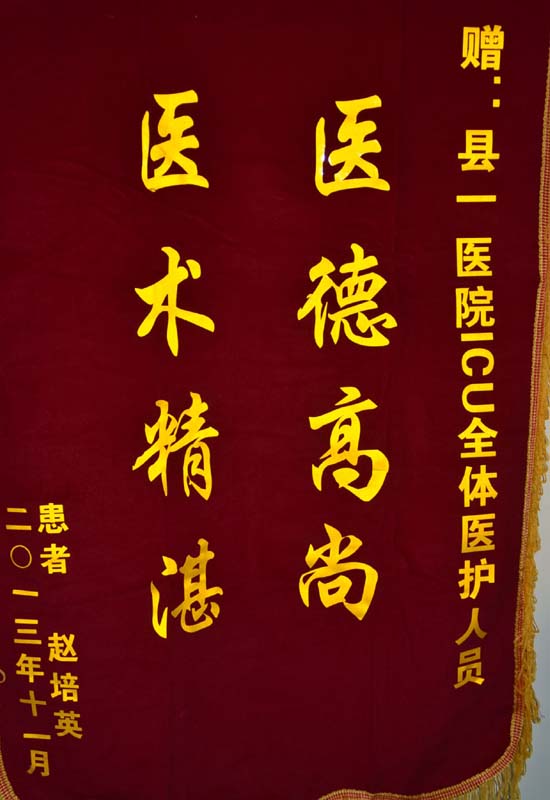 赠：县一医院ICU全体医护人员
医德高尚
医术精湛
患者 赵培英
二〇一三年十一月